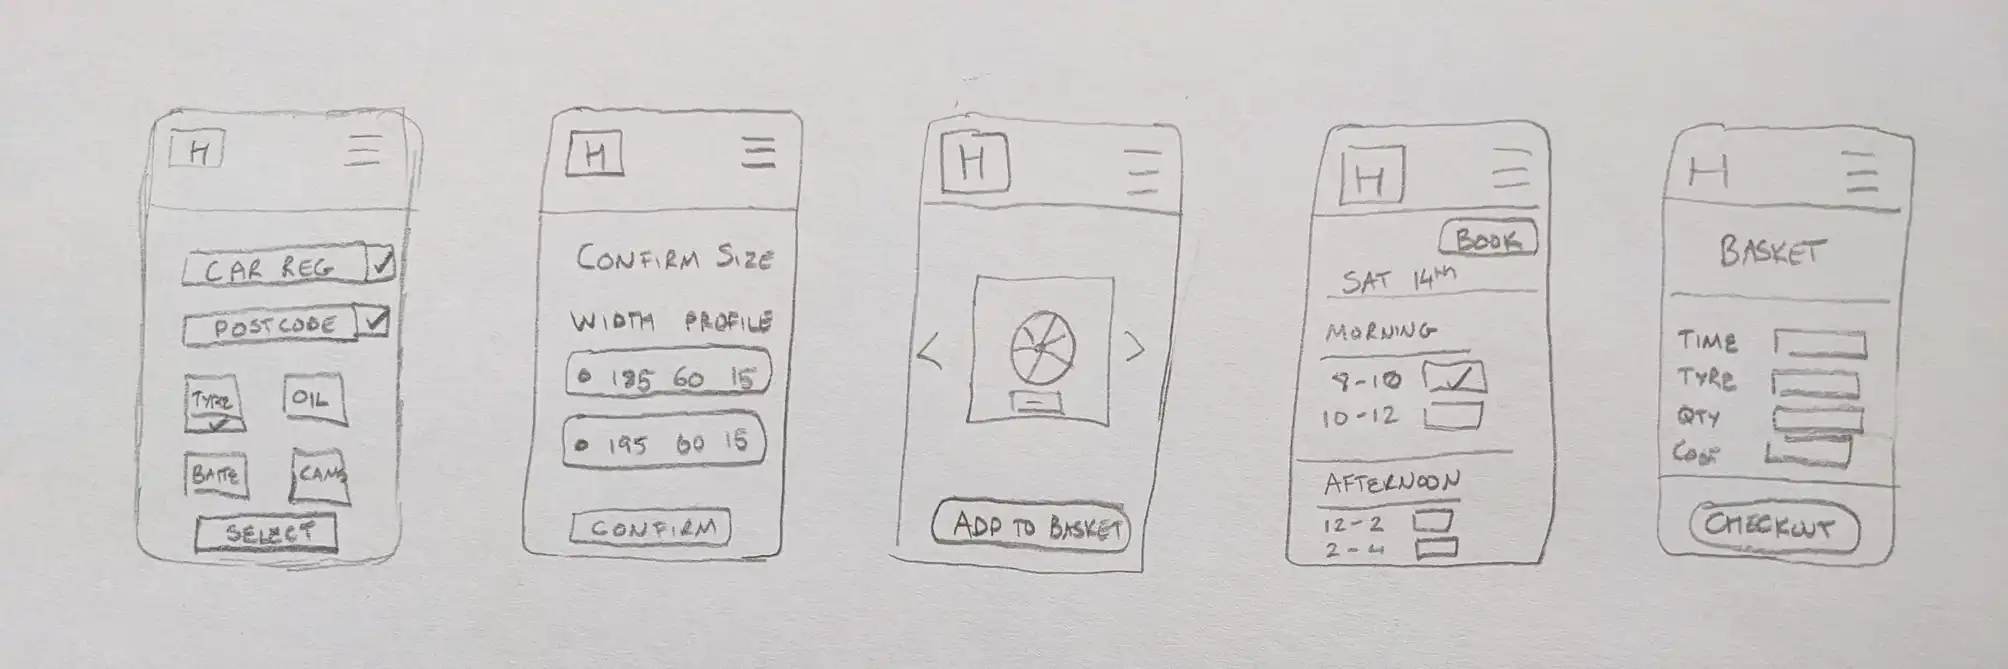 H
CAR REG
POSTCODE
TYRE OIL
BATTE
SELECT
H
CONFIRM SIZE
WIDTH PROFILE
185 60 15
195 60 15
CONFIRM
H
ADD TO BASKET
H
BOOK
SAT 14TH
MORNING
8-10
10-12
AFTERNOON
12-2
2-4
H
BASKET
TIME
TYRE
QTY
CODE
CHECKOUT